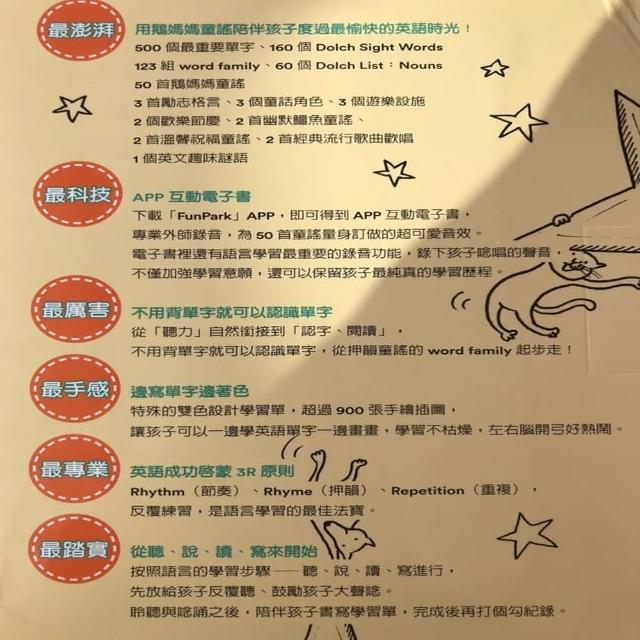 最澎湃
用鵝媽媽童謠陪伴孩子度過最愉快的英語時光！
500 個最重要單字、160 個 Dolch Sight Words
123 組 word family、60 個 Dolch List：Nouns
50 首鵝媽媽童謠
3 首勵志格言、3 個童話角色、3 個遊樂設施
2 個歡樂節慶、2 首幽默鱷魚童謠、
2 首溫馨祝福童謠、2 首經典流行歌曲歡唱
1 個英文趣味謎語
最科技
APP 互動電子書
下載「FunPark」APP，即可得到 APP 互動電子書，
專業外師錄音，為 50 首童謠量身訂做的超可愛音效。
電子書裡還有語言學習最重要的錄音功能，錄下孩子唸唱的聲音，
不僅加強學習意願，還可以保留孩子最純真的學習歷程。
最厲害
不用背單字就可以認識單字
從「聽力」自然銜接到「認字、閱讀」，
不用背單字就可以認識單字，從押韻童謠的 word family 起步走！
最手感
邊寫單字邊著色
特殊的雙色設計學習單，超過 900 張手繪插圖，
讓孩子可以一邊學英語單字一邊畫畫，學習不枯燥，左右腦開弓好熱鬧。
最專業
英語成功啓蒙 3R 原則
Rhythm（節奏）、Rhyme（押韻）、Repetition（重複），
反覆練習，是語言學習的最佳法寶。
最踏實
從聽、說、讀、寫來開始
按照語言的學習步驟──聽、說、讀、寫進行，
先放給孩子反覆聽、鼓勵孩子大聲唸。
聆聽與唸誦之後，陪伴孩子書寫學習單，完成後再打個勾紀錄。